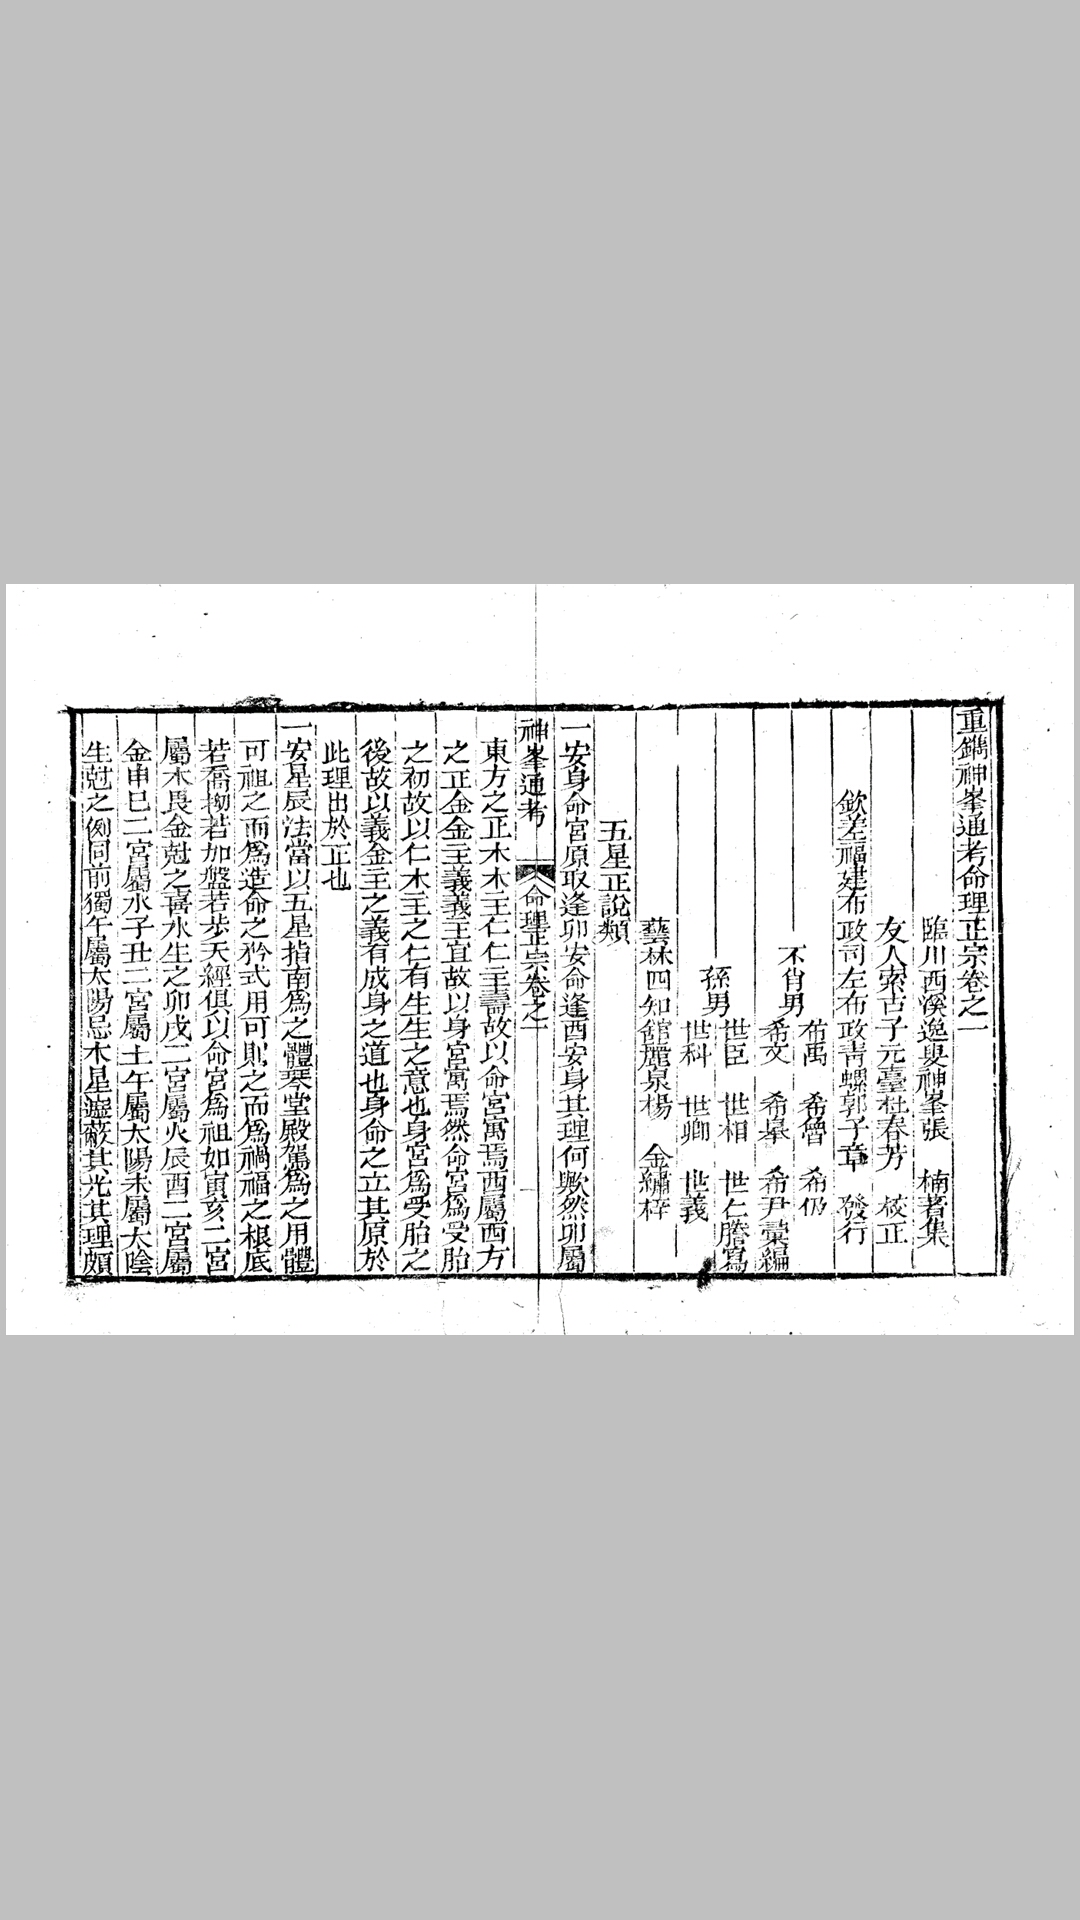 重鐫神峯通考命理正宗卷之一
臨川西溪逸叟神峯張　楠著集
友人索古子元臺杜春芳　校正
欽差福建布政司左布政青螺郭子章　發行
不肖男
希禹　希曾　希仍
希文　希皋　希尹彙編
孫男
世臣　世相　世仁謄寫
世科　世卿　世義
藝林四知館麗泉楊　金繡梓
五星正說類
一安身命宮原取逢卯安命逢酉安身其理何歟然卯屬
神峯通考　命理正宗卷之一
東方之正木木主仁仁主壽故以命宮寓焉酉屬西方
之正金金主義義主宜故以身宮寓焉然命宮爲受胎
之初故以仁木主之仁有生生之意也身宮爲受胎之
後故以義金主之義有成身之道也身命之立其原於
此理出於正也
一安星辰法當以五星指南爲之體琴堂殿駕爲之用體
可祖之而爲造命之矜式用可則之而爲禍福之根底
若喬拗若加盤若步天經俱以命宮爲祖如寅亥二宮
屬木畏金尅之喜水生之卯戌二宮屬火辰酉二宮屬
金申巳二宮屬水子丑二宮屬土午屬太陽未屬太陰
生尅之例同前獨午屬太陽忌木星遮蔽其光其理頗